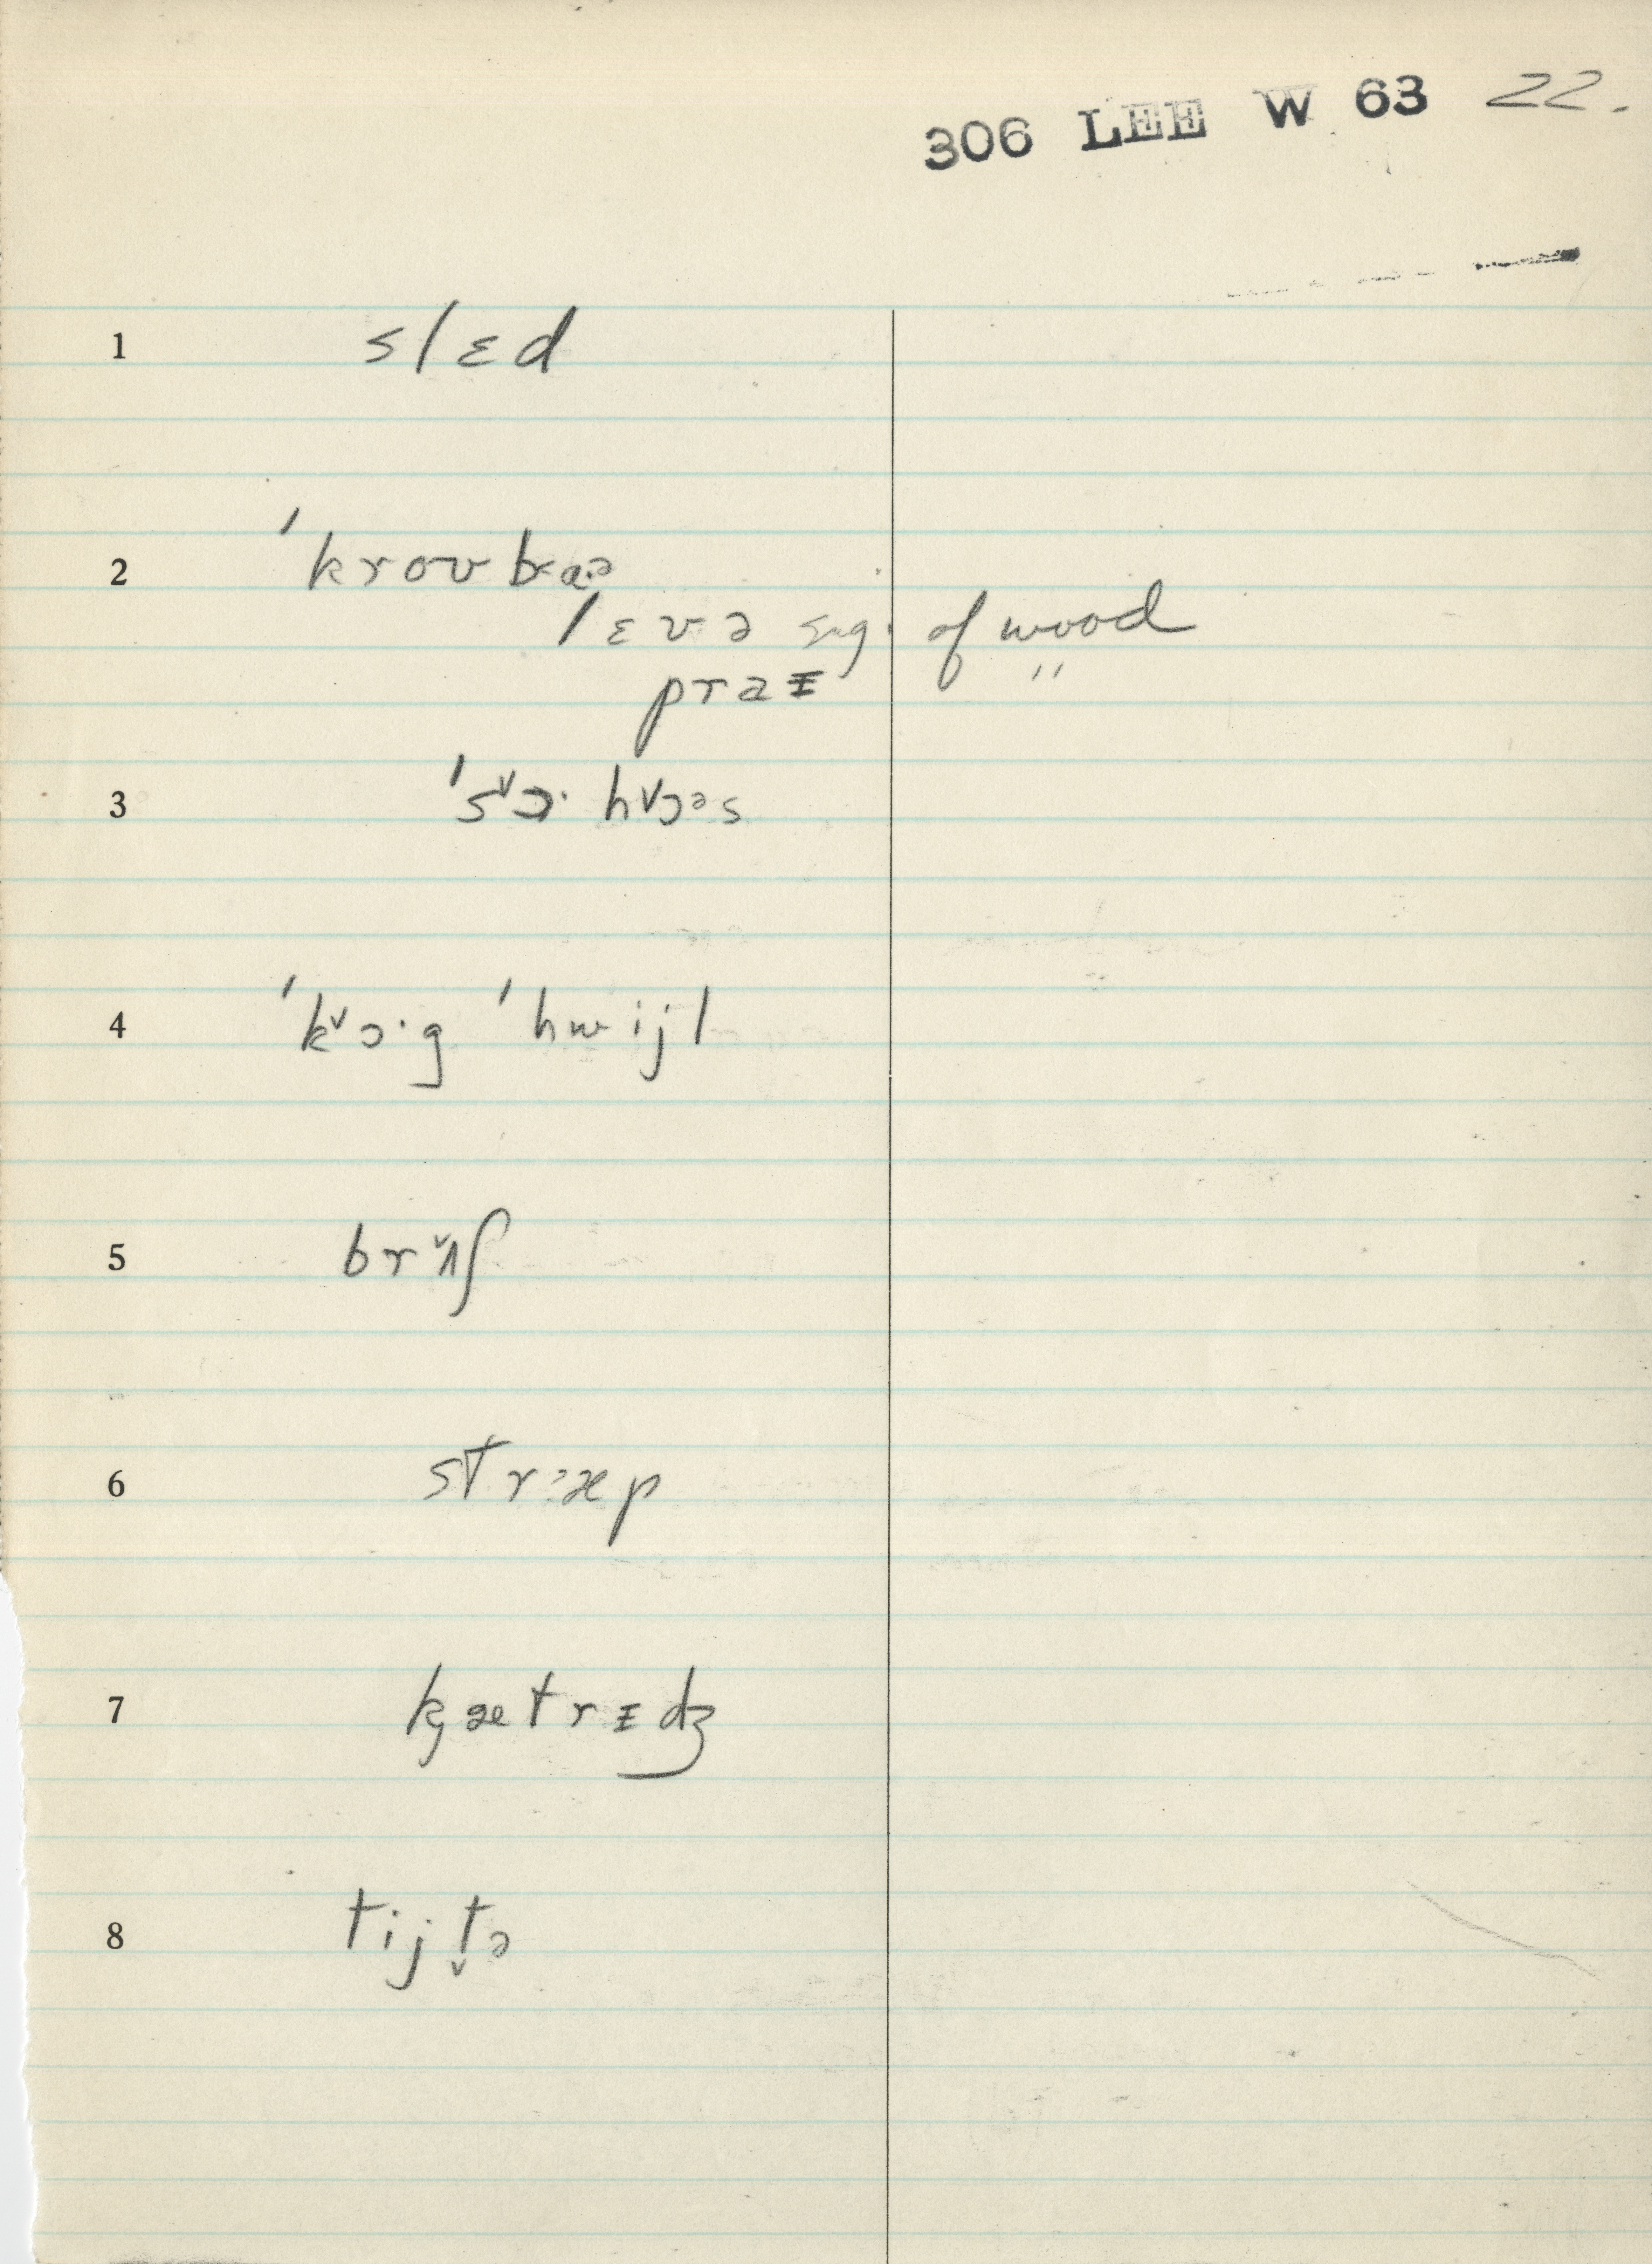 306 LEE W 63 22.
1 slɛd
2 ˈkroʊbɑ·ə
lɛvə sug. of wood
praɪ "
3 ˈsɔ˅· hɔ˅əs
4 ˈkɔ˅·g ˈhwijl
5 brʌ̌ʃ
6 stræp
7 kætrɪdʒ
8 tijt̬ə